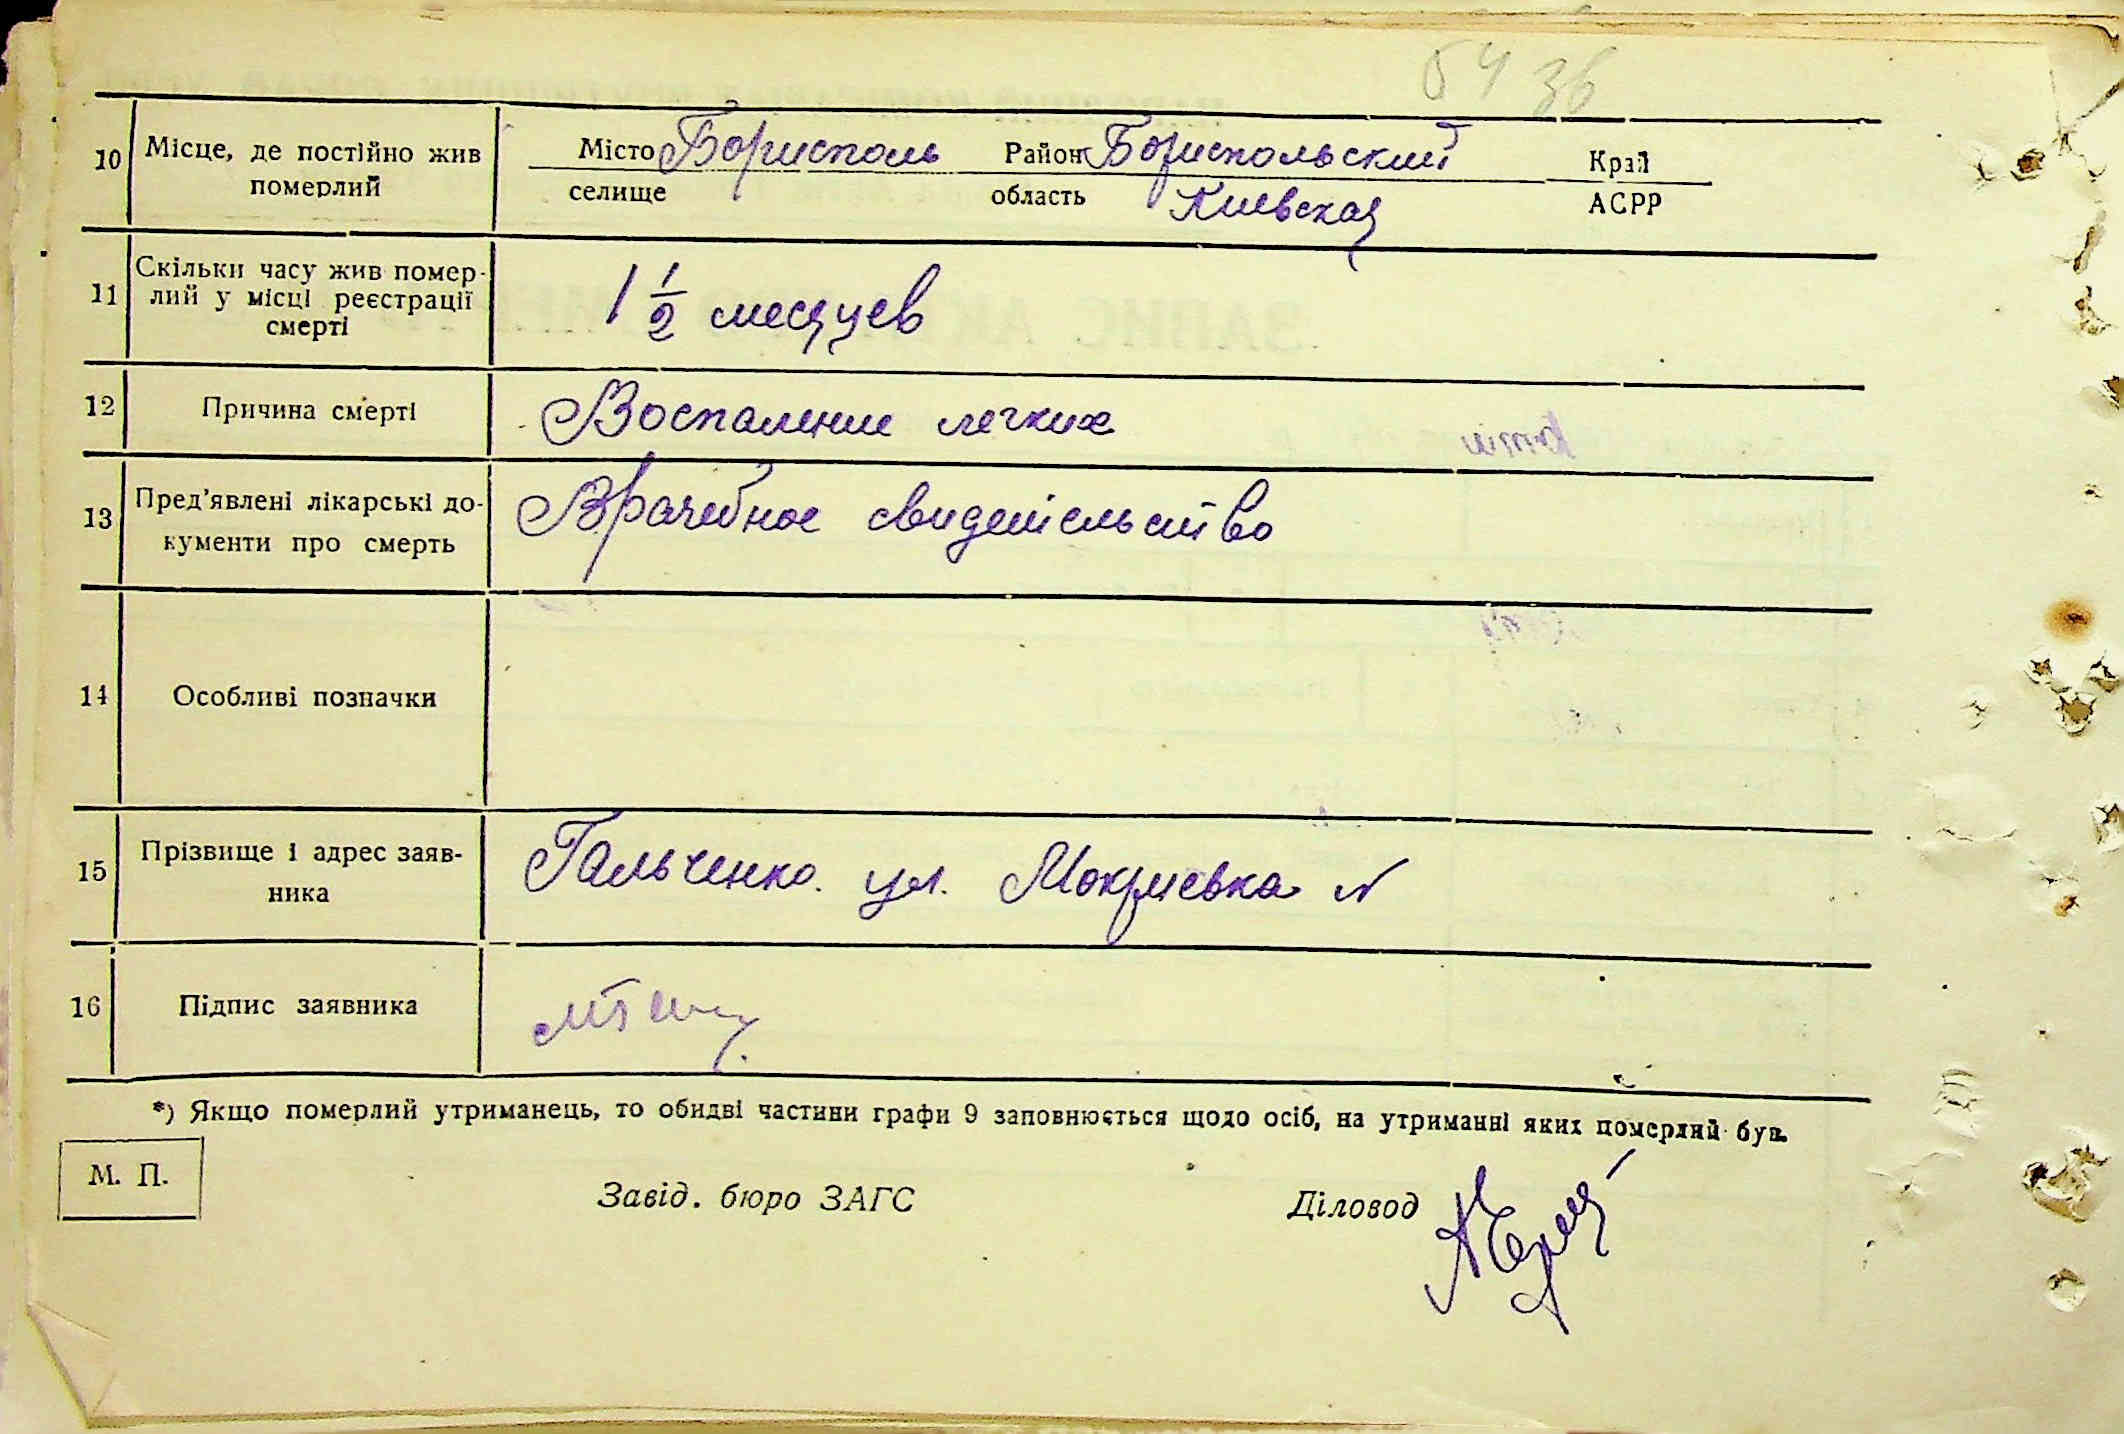 54 зв
10 Місце, де постійно жив померлий
Місто Борисполь Район Бориспольский Край
селище область Киевская АСРР
11 Скільки часу жив помер-
лий у місці реєстрації
смерті
1 1/2 месяцев
12 Причина смерті Воспаление легких
13 Пред'явлені лікарські до-
кументи про смерть
Врачебное свидетельство
14 Особливі позначки
15 Прізвище і адрес заяв-
ника
Гальченко. ул. Мокриевка N
16 Підпис заявника
*) Якщо померлий утриманець, то обидві частини графи 9 заповнюється щодо осіб, на утриманні яких померлий був.
М. П.
Завід. бюро ЗАГС Діловод